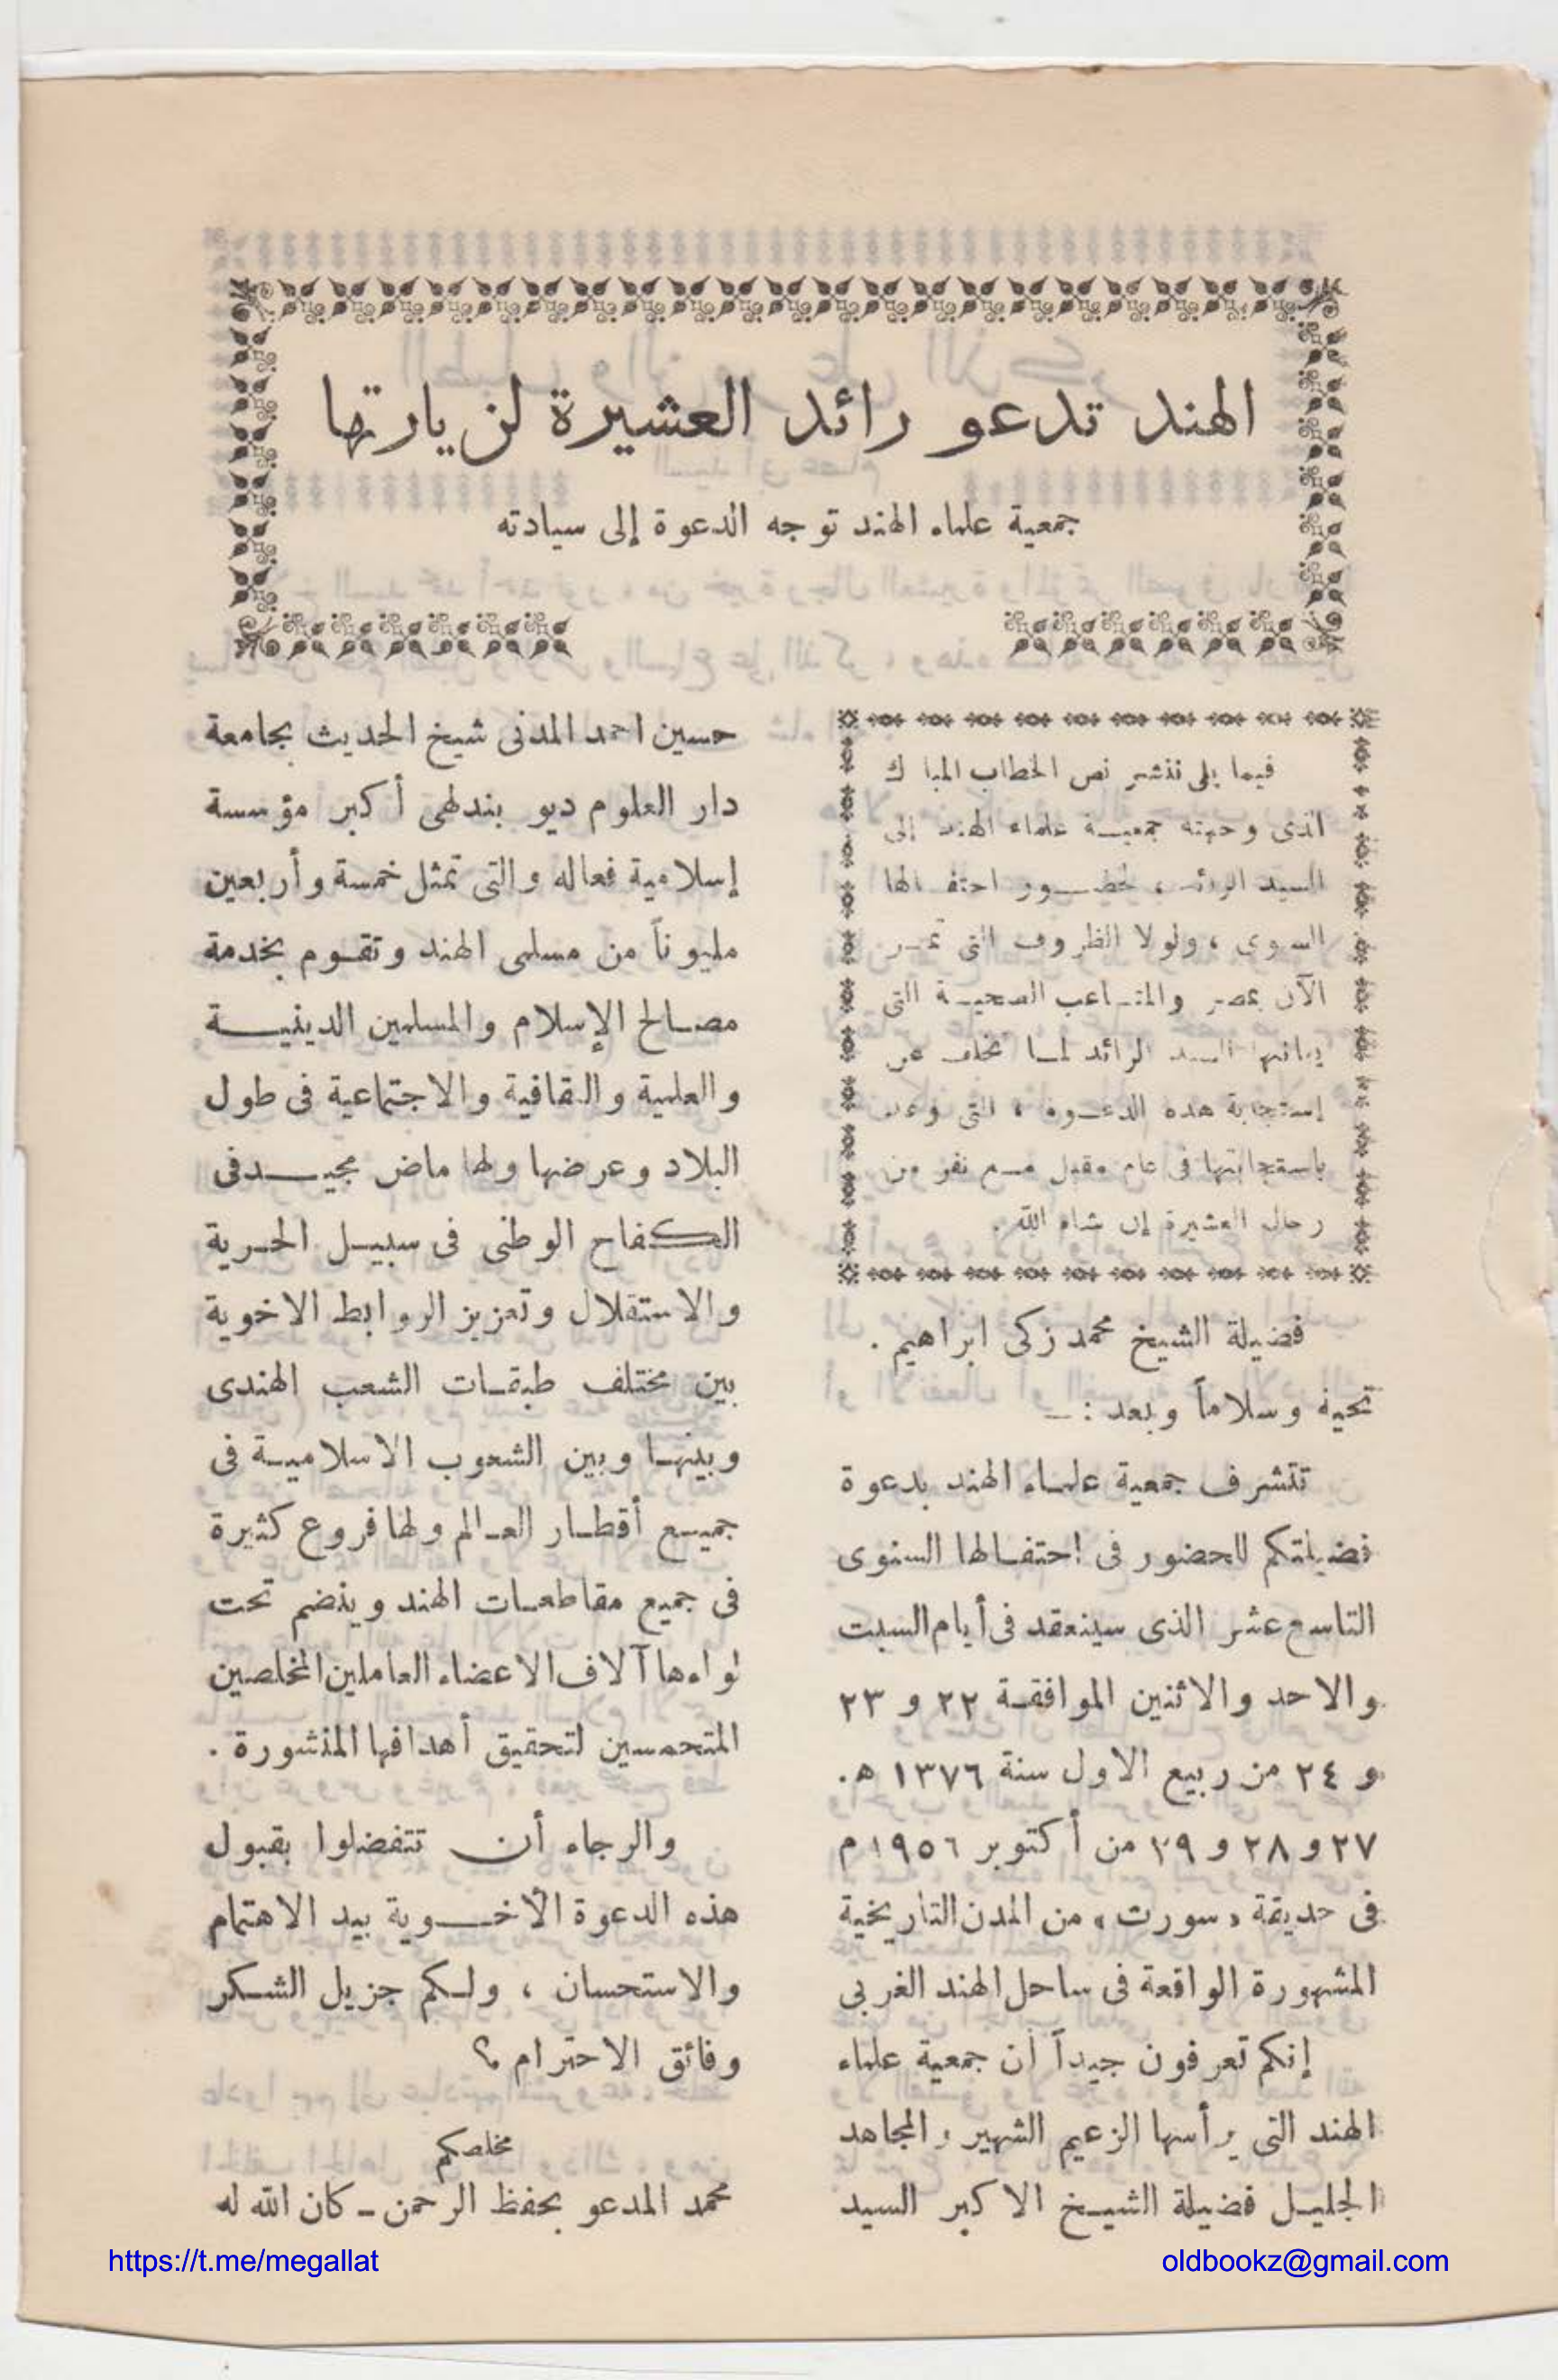 الهند تدعو رائد العشيرة لزيارتها
جمعية علماء الهند توجه الدعوة إلى سيادته
فيما يلى ننشر نص الخطاب المبا ك
الذى وجهته جمعيـة علماء الهند إلى
السيد الرائد ، لحضـــور احتفـالها
السنوى ، ولولا الظروف التى تمـر
الآن بمصر والمتـاعب الصحيـة التى
يعانيها السيد الرائد لمـا تخلف عن
إستجابة هذه الدعـوة ، التى وعد
باستجابتها فى عام مقبل مـع نفر من
رجال العشيرة إن شاء الله .
فضيلة الشيخ محمد زكى ابراهيم .
تحية وسلاماً وبعد : ـ
تتشرف جمعية علمـاء الهند بدعوة
فضيلتكم للحضور فى احتفـالها السنوى
التاسع عشر الذى سينعقد فى أيام السبت
والاحد والاثنين الموافقـة ٢٢ و ٢٣
و ٢٤ من ربيع الاول سنة ١٣٧٦ ه.
٢٧ و ٢٨ و ٢٩ من أكتوبر ١٩٥٦ م
فى حديقة « سورت » من المدن التاريخية
المشهورة الواقعة فى ساحل الهند الغربى
إنكم تعرفون جيداً أن جمعية علماء
الهند التى يرأسها الزعيم الشهير والمجاهد
الجليـل فضيلة الشيـخ الاكبر السيد
حسين احمد المدنى شيخ الحديث بجامعة
دار العلوم ديو بندهى أكبر مؤسسة
إسلامية فعاله والتى تمثل خمسة وأربعين
مليوناً من مسلمى الهند وتقـوم بخدمة
مصـالح الإسلام والمسلمين الدينيـــة
والعلمية والثقافية والاجتماعية فى طول
البلاد وعرضها ولها ماض مجيـــد فى
الكفاح الوطنى فى سبيـل الحـرية
والاستقلال وتعزيز الروابط الاخوية
بين مختلف طبقـات الشعب الهندى
وبينهـا وبين الشعوب الاسلاميـة فى
جميـع أقطـار العـالم ولها فروع كثيرة
فى جميع مقاطعـات الهند وينضم تحت
لواءها آلاف الاعضاء العاملين المخلصين
المتحمسين لتحقيق أهدافها المنشورة .
والرجاء أن تتفضلوا بقبول
هذه الدعوة الأخـــوية بيد الاهتمام
والاستحسان ، ولـكم جزيل الشـكر
وفائق الاحترام ؟
مخلصكم
محمد المدعو بحفظ الرحمن ـ كان الله له
https://t.me/megallat
oldbookz@gmail.com